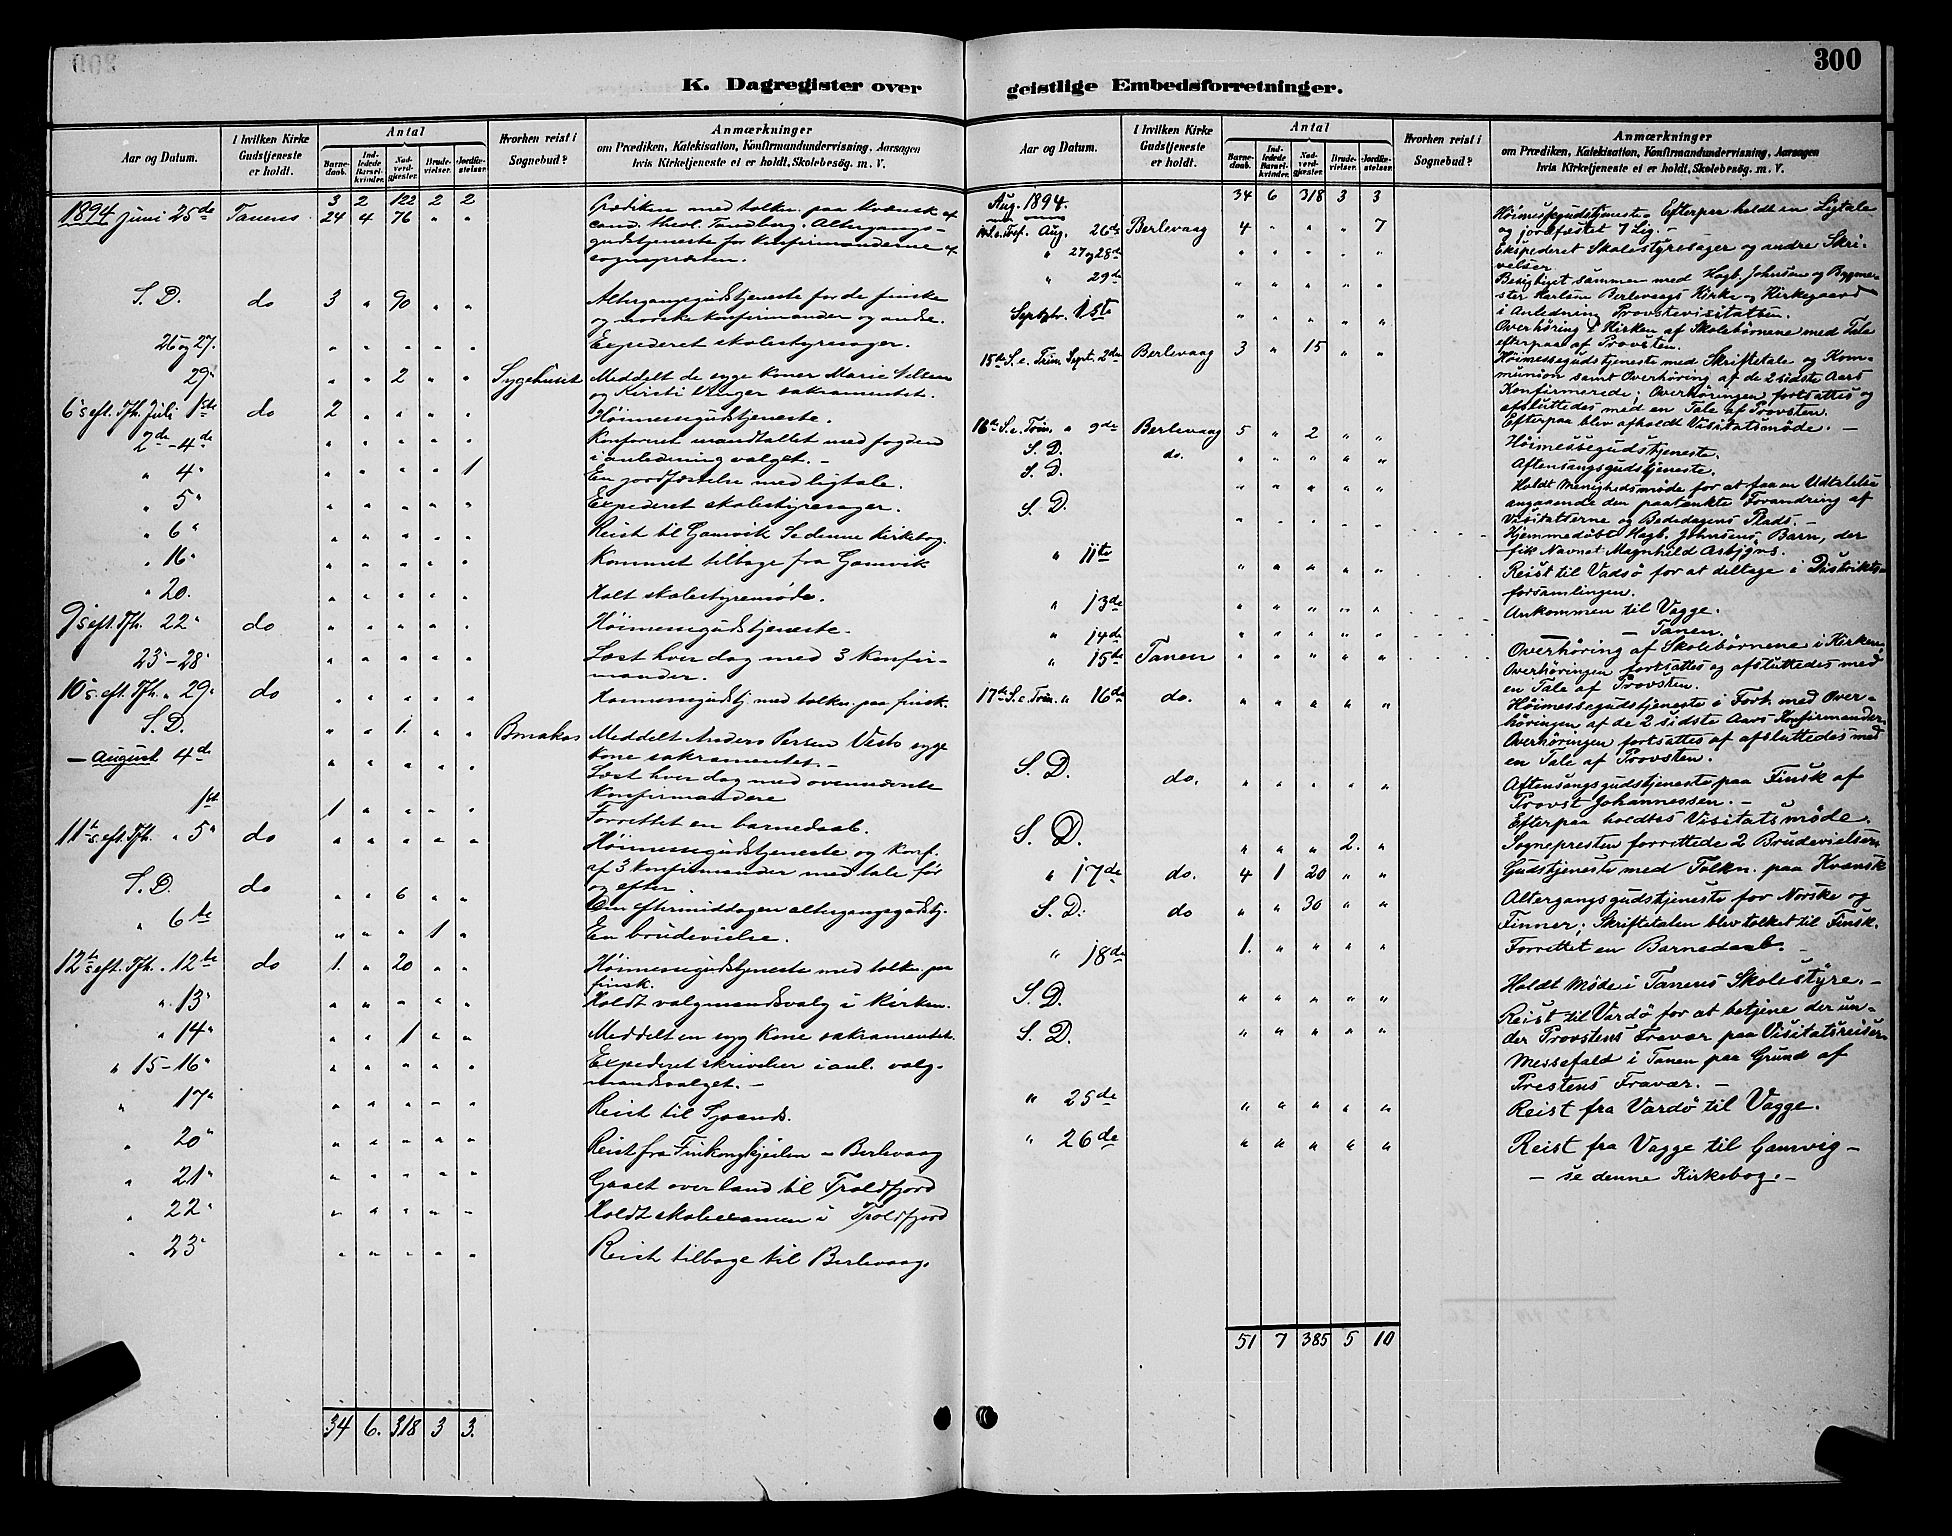 300
K. Dagregister over
geistlige Embedsforretninger.
Aar og Datum.
I hvilken Kirke Gudstjeneste er holdt.
Antal
Barne-daab.
Ind-ledede Barsel-kvinder.
Nad-verd-gjester.
Brude-vielser.
Jordfæ-stelser.
Hvorhen reist i Sognebud?
Anmærkninger
om Prædiken, Katekisation, Konfirmandundervisning, Aarsagen
hvis Kirketjeneste ei er holdt, Skolebesög. m. V.
3 2 122 2 2
1894 Juni 25de Tanens 24 4 76 " " Prædiken med tolkn. paa kvænsk af
cand. theol. Tandberg. Altergangs-
gudstjeneste for konfirmanderne af
sognepræsten.
S. D. do 3 " 90 " " Altergangsgudstjeneste for de finske
og norske konfirmander og andre.
26 og 27. " " " " " Expederet skolestyresager.
29" " " 2 " " Sygehuset Meddelt de syge koner Marie Nilsen
og Kirsti Unger sakramentet.
6 s eft. Tfh. Juli 1ste do 2 " " " " Höimessegudstjeneste.
2de-4de " " " " " Konforeret mandtallet med fogden
i anledning valget. -
" 4" " " " " 1 En jordfæstelse med ligtale.
" 5" " " " " " Expederet skolestyresager.
" 6" " " " " " Reist til Gamvik Se denne kirkebog.
" 16" " " " " " Kommet tilbage fra Gamvik
" 20. " " " " " Holt skolestyremöde.
9 s eft. Tfh. 22" do " " " " " Höimessegudstjeneste.
23-28" " " " " " Læst hver dag med 3 konfir-
mander.
10 s. eft. Tfh. " 29" do " " " " " Høimessegudstj. med tolkn. paa finsk.
S. D. " " 1. " " Bonakas Meddelt Anders Persen Vests syge
kone sakramentet. -
- August 4de " " " " " Læst hver dag med ovennævnte
konfirmandere
1st 1 " " " " Forrettet en barnedaab.
11te s. eft. Tfh. " 5" do " " " " " Höimessegudstjeneste og konf.
af 3 konfirmander med tale før
og efter.
S. D. do " " 6 " " Om eftermiddagen altergangsgudstj.
" 6te " " " 1 " En brudevielse.
12te s eft. Tfh. " 12te do 1. " 20 " " Höimessegudstjeneste med tolkn. paa
finsk.
" 13" " " " " " Holdt valgmandsvalg i kirken.
" 14" " " 1 " " Meddelt en syg kone sakramentet.
" 15-16" " " " " " Expederet skrivelser i anl. valg-
mandsvalget. -
" 17" " " " " " Reist til
" 20" " " " " " Reist fra Finkongkjeilen - Berlevaag
" 21" " " " " " Gaaet over land til Troldfjord
" 22" " " " " " Holdt skoleexamen i Troldfjord
" 23" " " " " " Reist tilbage til Berlevaag.
34 6. 318 3 3.
Aar og Datum.
I hvilken Kirke Gudstjeneste er holdt.
Antal
Barne-daab.
Ind-ledede Barsel-kvinder.
Nad-verd-gjester.
Brude-vielser.
Jordfæ-stelser.
Hvorhen reist i Sognebud?
Anmærkninger
om Prædiken, Katekisation, Konfirmandundervisning, Aarsagen
hvis Kirketjeneste ei er holdt, Skolebesög. m. V.
Aug. 1894. 34 6 318 3 3
14. S. e. Tref. Aug. 26de Berlevaag 4 " " " 7 Höimessegudstjeneste. Efterpaa holdt en Ligtale
og jordfæstet 7 Lig. -
" 27 og 28de " " " " " Ekspederet Skolestyresager og andre Skri-
velser.
" 29de " " " " " Besigtiget sammen med Hagb. Johnsen og Bygme-
ster Karlsen Berlevaags Kirke og Kirkegaard
i Anledning Provstevisitatsen.
Septbr. 1ste " " " " " Overhöring i Kirken af Skolebörnene med Tale
efterpaa af Provsten.
15de S. e. Trin. Sept. 2den Berlevaag 3 " 15 " " Höimessegudstjeneste med Skriftetale og Kom-
munion samt Overhöring af de 2 sidste Aars
Konfirmerede; Overhöringen fortsattes og
afsluttedes med en Tale af Provsten.
Efterpaa blev afholdt Visitatsmöde. -
16de S. e. Trin. " 9de Berlevaag 5 " 2 " " Höimessegudstjeneste.
S. D. do. " " " " " Aftensangsgudstjeneste.
S. D. " " " " " Holdt Menighedsmöde for at faa en Udtalelse
angaaende den paatænkte Forandring af
Visitatserne og Bededagens Plads. -
S. D. " " " " " Hjemmedöbt Hagb. Johnsens Barn, der
fik Navnet Magnhild Asbjörns.
" 11te " " " " " Reist til Vadsö for at deltage i Distrikts-
forsamlingen.
" 13de " " " " " Ankommen til Vagge.
" 14de " " " " " — - Tanen.
" 15de Tanen " " " " " Overhöring af Skolebörnene i Kirken.
Overhöringen fortsattes og afsluttedes med
en Tale af Provsten.
17de S. e. Trin. " 16de do. " " " " " Höimessegudstjeneste i Forb. med Over-
höringen af de 2 sidste Aars Konfirmander.
Overhöringen fortsattes af afsluttedes med
en Tale af Provsten.
S. D. do. " " " " " Aftensangsgudstjeneste paa Finsk af
Provst Johannessen. -
Efterpaa holdtes Visitatsmöde.
S. D. " " " 2. " Sognepresten forrettede 2 Brudevielser.
" 17de do. 4 1 20 " " Gudstjeneste med Tolkn. paa Kvænsk
S. D. do " " 30 " " Altergangsgudstjeneste for Norske og
Finner; Skriftetalen blev tolket til Finsk.
" 18de 1. " " " " Forrettet en Barnedaab. -
S. D. " " " " " Holdt Möde i Tanens Skolestyre. -
S. D. " " " " " Reist til Vardö for at betjene der un-
der Provstens Fravær paa Visitatsreisen
Messefald i Tanen paa Grund af
Prestens Fravær. -
" 25de " " " " " Reist fra Vardö til Vagge.
" 26de " " " " " Reist fra Vagge til Gamvig -
- se denne Kirkebog. -
51 7 385 5 10